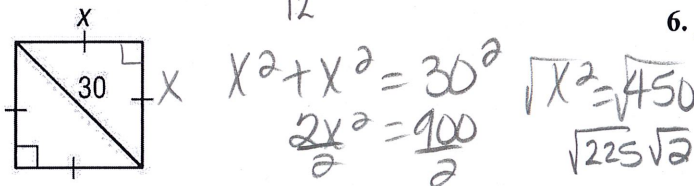 12
x
6.
30
x
x² + x² = 30²
2x²/2 = 900/2
√x² = √450
√225 √2